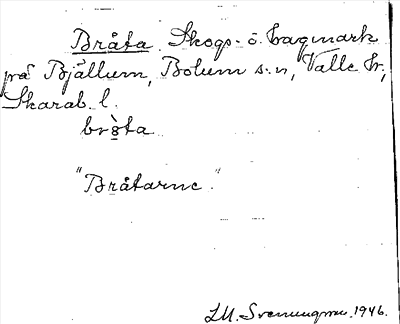 Bråta. Skogs- o. hagmark
på Bjällum, Bolum s:n, Valle hr,
Skarab. l.
br8̀ta
"Bråtarne."
1946.